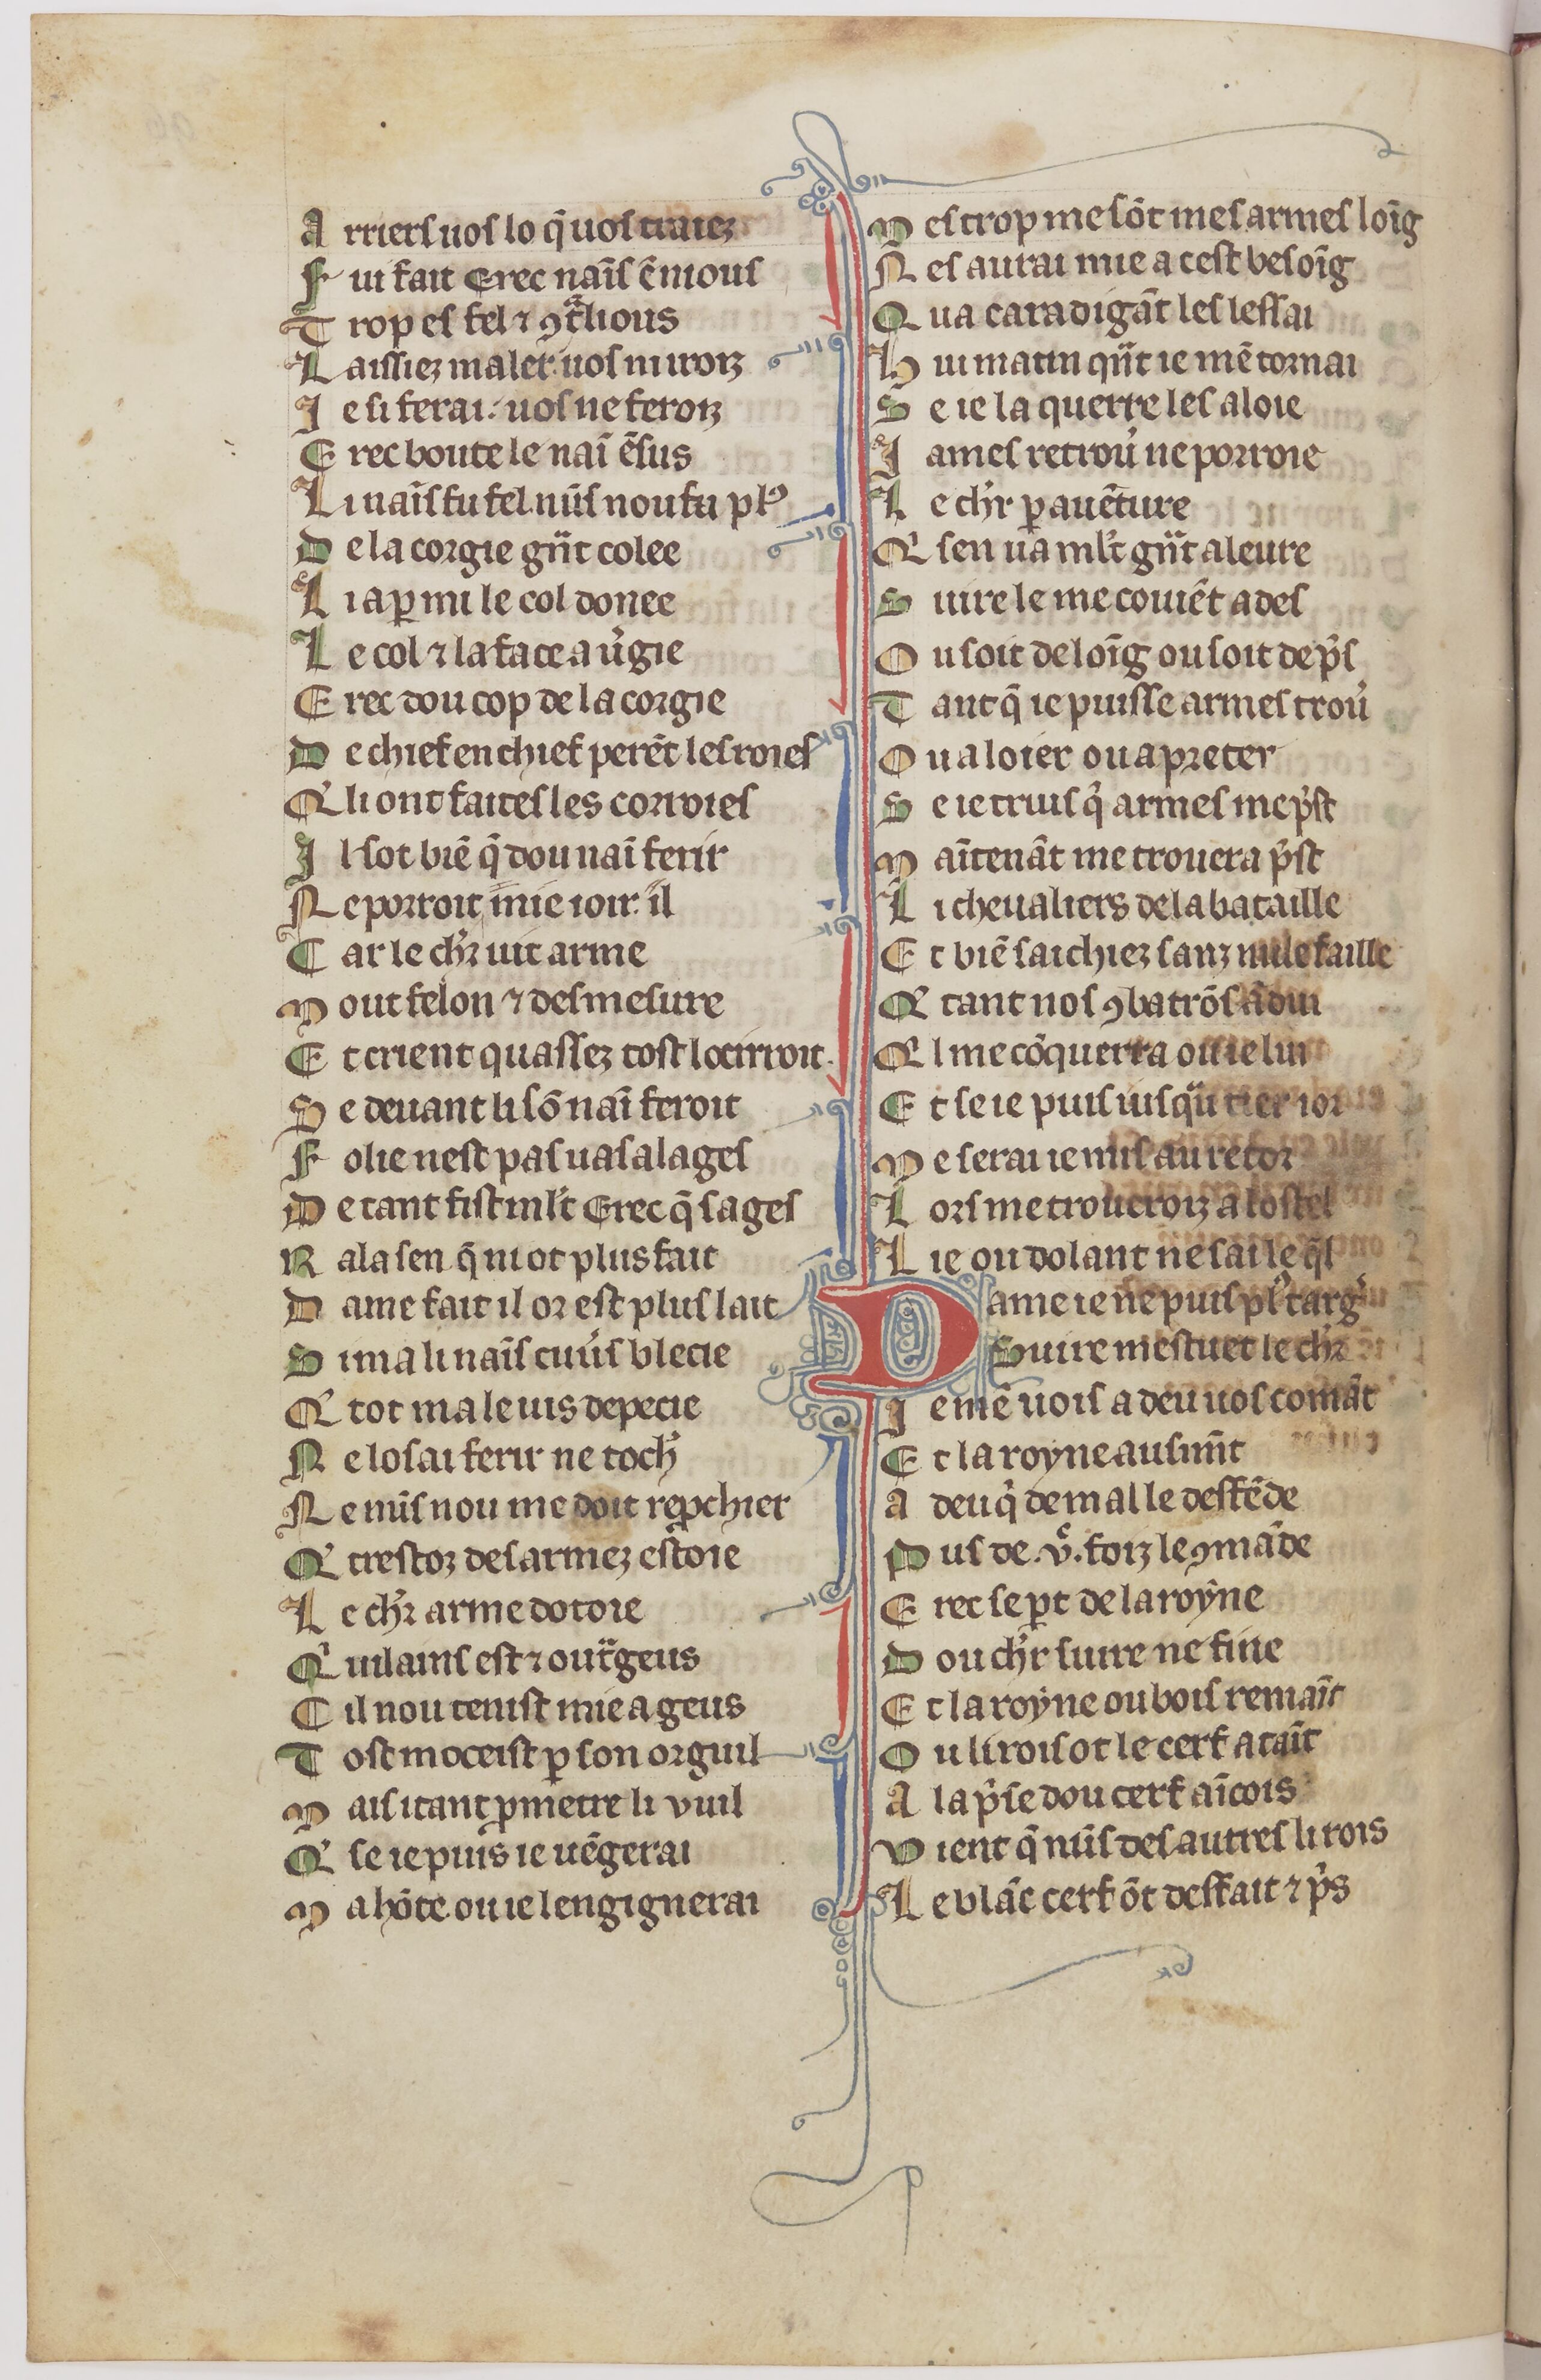 A rriers uos lo q̄ uos traiez
F ui fait Erec naīs ēnious
T rop es fel ⁊ ꝯt̾lious
L aissiez maler uos ni uroiz
J e si ferai. uos ne feroiz
E rec boute le naī ēsus
L i naīs fu fel nūs nou fu plꝰ
D e la corgie gn̄t colee
L i a ꝑmi le col donee
L e col ⁊ la face a u̓gie
E rec dou cop de la corgie
D e chief en chief perēt les roies
Q̓ li ont faites les corroies
J l sot biē q̄ dou nai ferir
N e porroit mie ioir il
C ar le chr̄ uit arme
M out felon ⁊ desmesure
E t crient quassez tost locirroit
S e deuant li sō naī feroit
F olie nest pas uasalages
D e tant fist ml̄t Erec q̄ sages
R ala sen q̄ ni ot plus fait
D ame fait il or est plus lait
S i ma li naīs cuu̓s blecie
Q̓ tot ma le uis depecie
N e losai ferir ne toch̓
N e nūs nou me doit reꝓchier
Q̓ trestoz desarmez estoie
L e chr̄ arme dotoie
Q̓ uilains est ⁊ out̾geus
C il nou tenist mie a geus
T ost moceist ꝑ son orguil
M ais itant ꝓmetre li vuil
Q̓ se ie puis ie uēgerai
M a hōte ou ie lengignerai
M es trop me sōt mes armes loīg
N es aurai mie a cest besoīg
Q ua caradigāt les lessai
H ui matin qn̄t ie mē tornai
S e ie la querre les aloie
J ames retrou̓ ne porroie
L e chr̄ ꝑ auēture
Q̓ sen ua ml̄t gn̄t aleure
S uire le me couiēt ades
O u soit de loīg ou soit de p̓s
T ant q̄ ie puisse armes trou̓
O u a loier ou a preter
S e ie truis q̓ armes me p̓st
M aītenāt me trouera p̓st
L i cheualiers de la bataille
E t biē saichiez sanz nule faille
Q̓ tant nos ꝯbatrōs ādui
Q̓ l me cōquerra ou ie lui
E t se ie puis iusqu tier ior
M e serai ie mis au retor
L ors me troueroiz a lostel
L ie ou dolant ne sai le q̄l
Dame ie ne puis plꝰ targ̓
S uire mestuet le chr̄
J e mē uois a deu uos comāt
E t la royne ausimt̄
A deu q̓ de mal le deffēde
P lus de .v. foiz le ꝯmāde
E rec se ꝑt de la royne
D ou chr̄ suire ne fine
E t la royne ou bois remaīt
O u li rois ot le cerf ataīt
A la p̓se dou cerf aīcois
V ient q̄ nūs des autres li rois
L e blāc cerf ōt deffait ⁊ p̓s